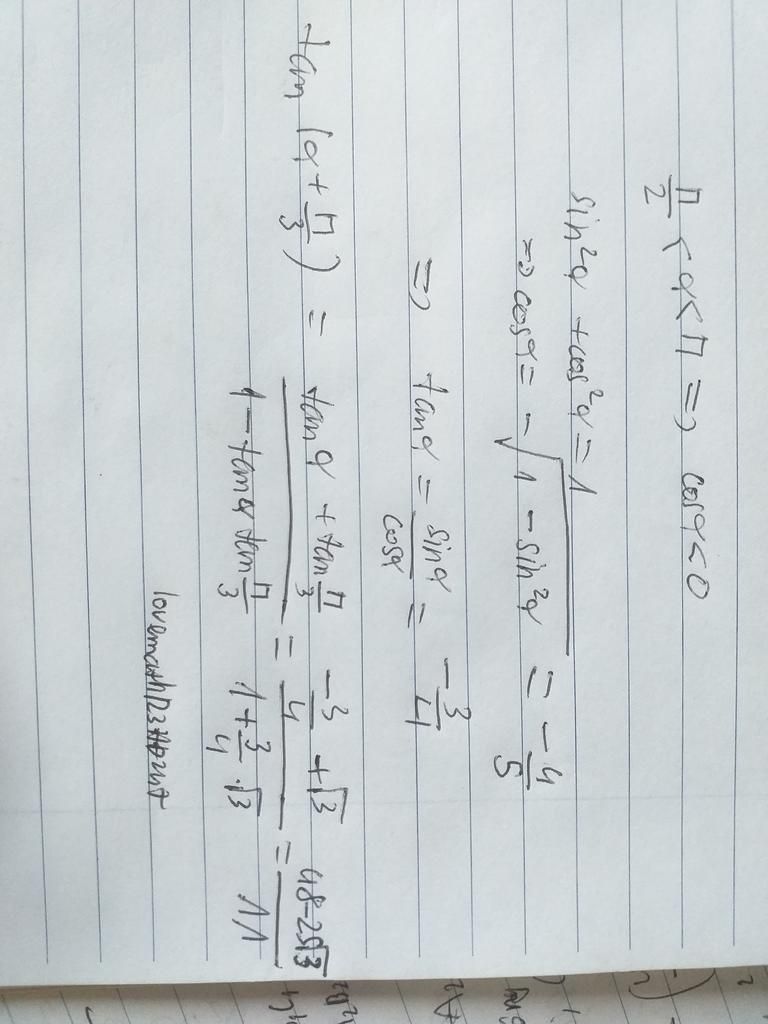 π/2 < α < π => cosα < 0
sin²α + cos²α = 1
=> cosα = -√(1 - sin²α) = -4/5
=> tanα = sinα/cosα = -3/4
tan(α + π/3) = (tanα + tan π/3)/(1 - tanα tan π/3) = (-3/4 + √3)/(1 + 3/4 · √3) = (48-25√3)/11